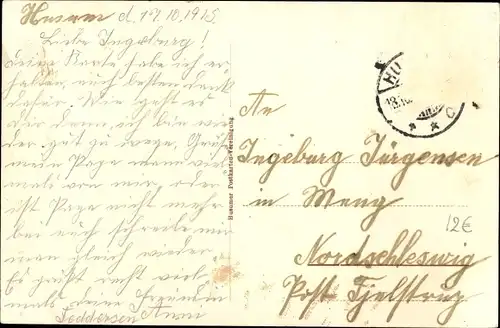 Husum d. 17.10.1915.
Liebe Ingeburg!
deine Karte habe ich er
halten, auch besten dank
dafür. Wie geht es
dir denn, ich bin wie
der gut zu wege, Grüß
mein Page mann viel
mals von mir, oder
ist Page nicht mehr
bei euch schreibe mir
man gleich wieder
Es grüßt recht viel
mals deine Freundin
Feddersen Anni
Husumer Postkarten-Vereinigung
HU
18.10.
C
An
Ingeburg Jürgensen
in Meng
Nordschleswig
Post Tjelstrup
12€